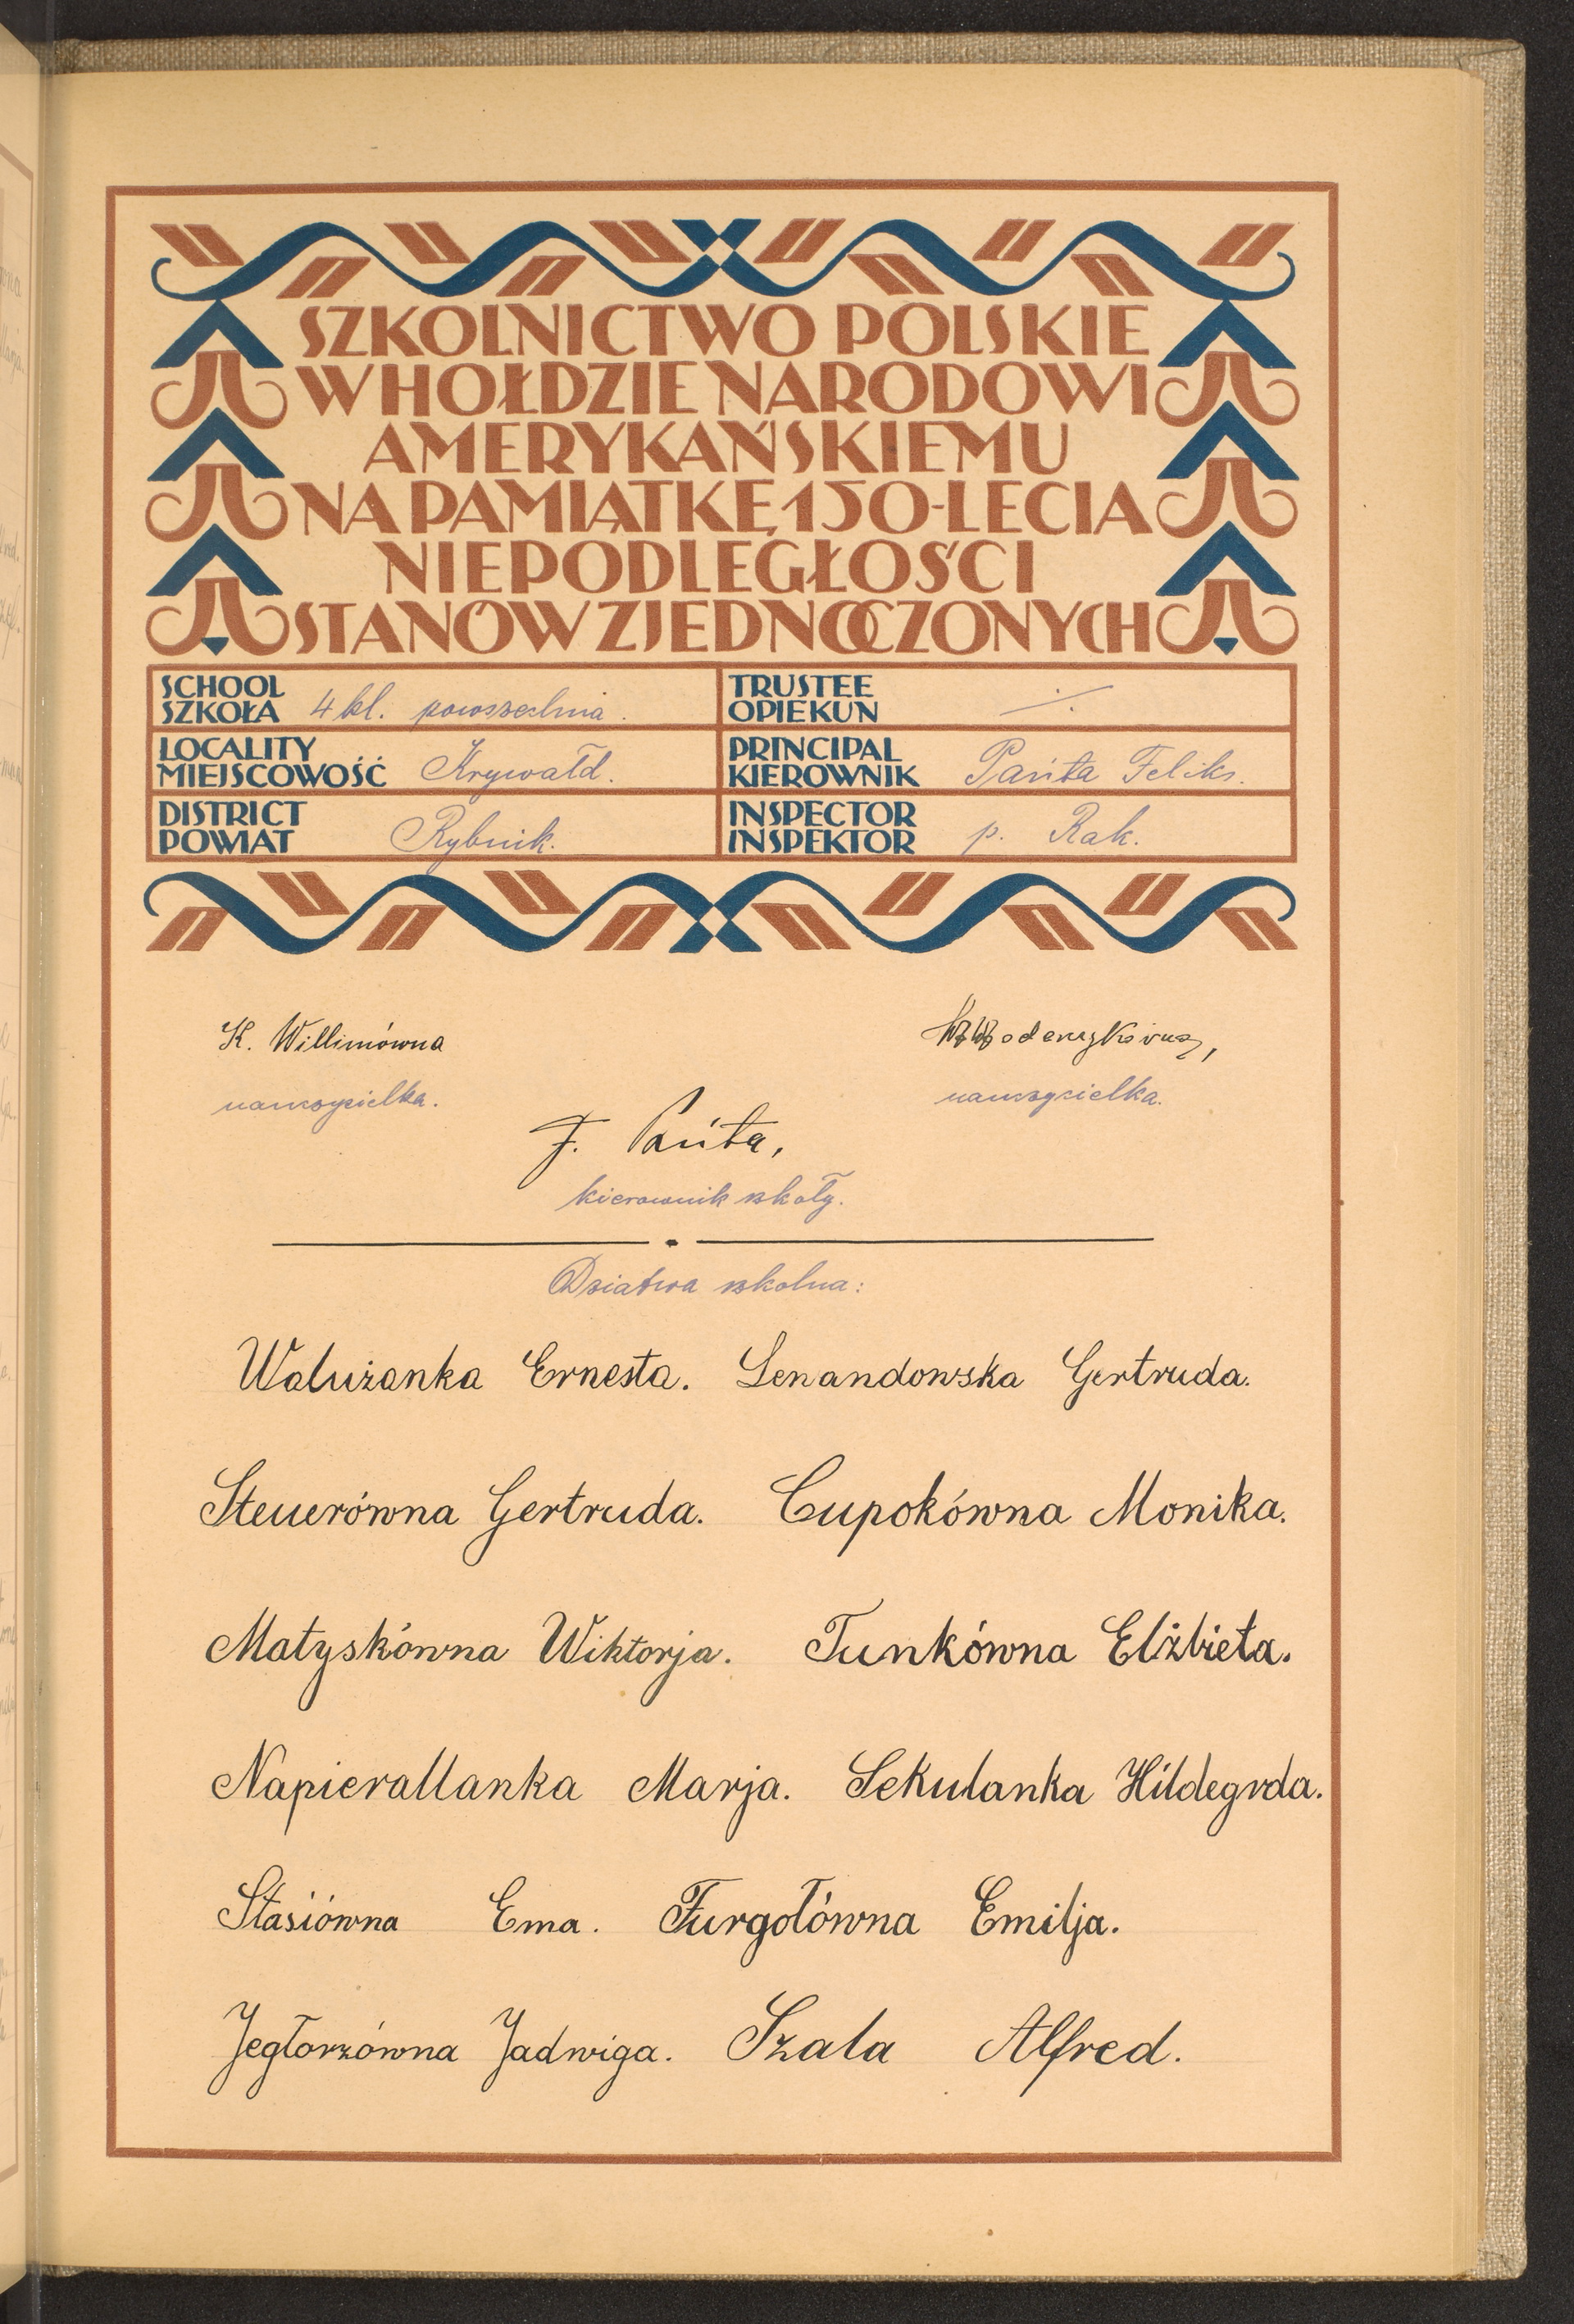 SZKOLNICTWO POLSKIE
W HOŁDZIE NARODOWI
AMERYKAŃSKIEMU
NA PAMIĄTKĘ 150-LECIA
NIEPODLEGŁOŚCI
STANÓW ZJEDNOCZONYCH
SCHOOL
SZKOŁA 4 kl. powszechna.
TRUSTEE
OPIEKUN
LOCALITY
MIEJSCOWOŚĆ Krywałd.
PRINCIPAL
KIEROWNIK Pańta Feliks.
DISTRICT
POWIAT Rybnik.
INSPECTOR
INSPEKTOR p. Rak.
K. Willimówna
nauczycielka.
nauczycielka.
F. Pańta,
kierownik szkoły.
Dziatwa szkolna:
Walużanka Ernesta. Lenandowska Gertruda.
Steuerówna Gertruda. Cupokówna Monika.
Matyskówna Wiktorja. Tunkówna Elżbieta.
Napierallanka Marja. Sekulanka Hildegrda.
Stasiówna Ema. Furgołówna Emilja.
Jegłorzówna Jadwiga. Szala Alfred.